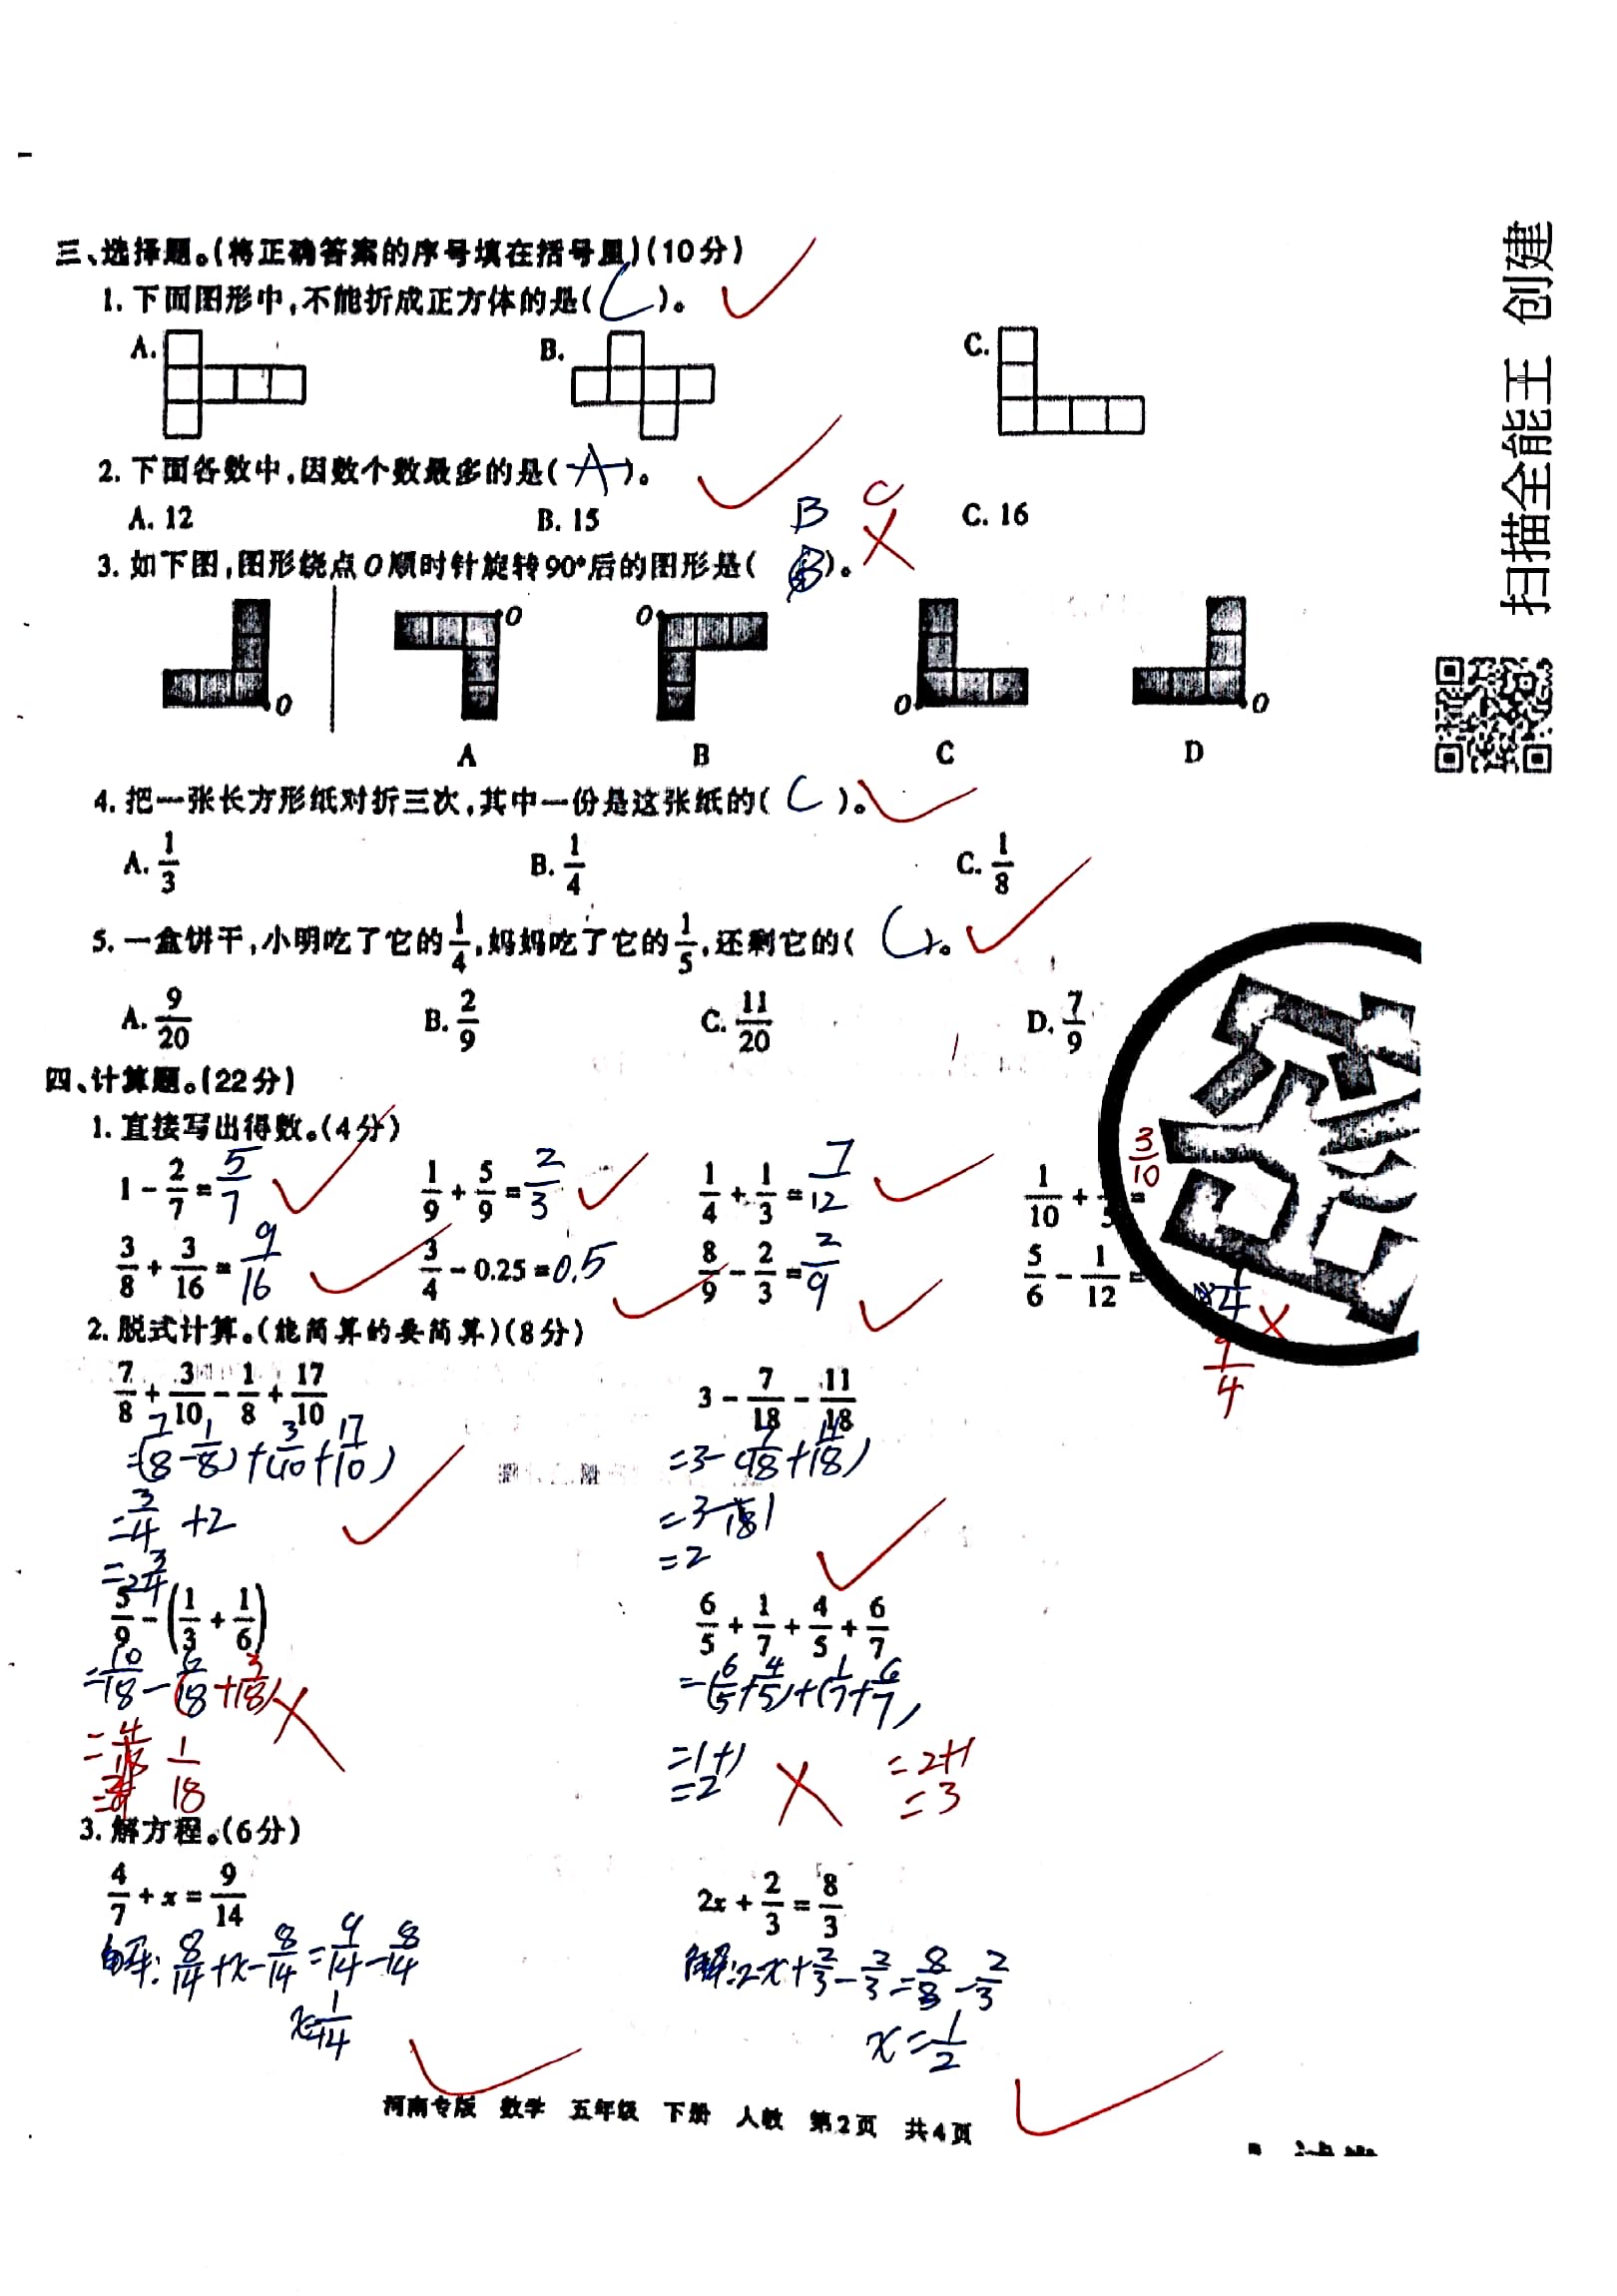 三、选择题。(将正确答案的序号填在括号里)(10分)
1. 下面图形中,不能折成正方体的是( C )。
A. B. C.
2. 下面各数中,因数个数最多的是( A )。
A. 12 B. 15 C. 16
B C
3. 如下图,图形绕点O顺时针旋转90°后的图形是( B )。
O O O O O
A B C D
4. 把一张长方形纸对折三次,其中一份是这张纸的( C )。
A. 1/3 B. 1/4 C. 1/8
5. 一盒饼干,小明吃了它的1/4,妈妈吃了它的1/5,还剩它的( C )。
A. 9/20 B. 2/9 C. 11/20 D. 7/9
四、计算题。(22分)
1. 直接写出得数。(4分)
1 - 2/7 = 5/7 1/9 + 5/9 = 2/3 1/4 + 1/3 = 7/12 1/10 + /5 = 3/10
3/8 + 3/16 = 9/16 3/4 - 0.25 = 0.5 8/9 - 2/3 = 2/9 5/6 - 1/12 =
2. 脱式计算。(能简算的要简算)(8分)
7/8 + 3/10 - 1/8 + 17/10 3 - 7/18 - 11/18
=(7/8-1/8)+(3/10+17/10) =3-(7/18+11/18)
=3/4+2 =3-1
=2 3/4 =2
5/9 - (1/3 + 1/6) 6/5 + 1/7 + 4/5 + 6/7
=10/18-(6/18+3/18) =(6/5+4/5)+(1/7+6/7)
1/18 =1+1 =2+1
=2 =3
3. 解方程。(6分)
4/7 + x = 9/14 2x + 2/3 = 8/3
解:8/14+x-8/14=9/14-8/14 解:2x+2/3-2/3=8/3-2/3
x=1/14 x=1/2
河南专版 数学 五年级 下册 人教 第2页 共4页
扫描全能王 创建